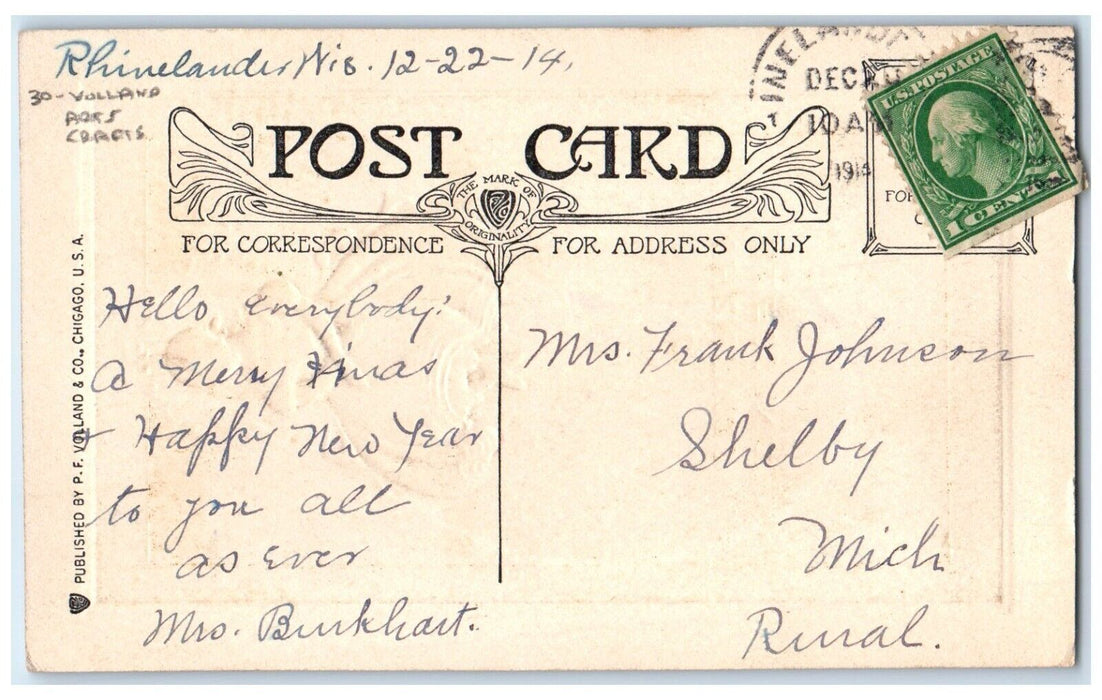 Rhinelander Wis. 12-22-14.
30 - VOLLAND
POST CARD
THE MARK OF
ORIGINALITY
FOR CORRESPONDENCE
FOR ADDRESS ONLY
INELANDE
DEC
10 A
1914
U.S. POSTAGE
1 CENT
FOR
PUBLISHED BY P. F. VOLLAND & CO., CHICAGO, U. S. A.
Hello Everybody:
a Merry Xmas
+ Happy New Year
to you all
as ever
Mrs. Burkhart.
Mrs. Frank Johnson
Shelby
Mich
Rural.